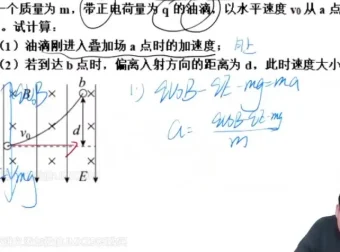 一个质量为 m，带正电荷量为 q 的油滴，以水平速度 v0 从 a 点
。试计算：
（1）油滴刚进入叠加场 a 点时的加速度； 向上
（2）若到达 b 点时，偏离入射方向的距离为 d，此时速度大小
qv0B
B
b
1) qv0B - qE - mg = ma
v0
d
a = qv0B-qE-mg / m
mg
E